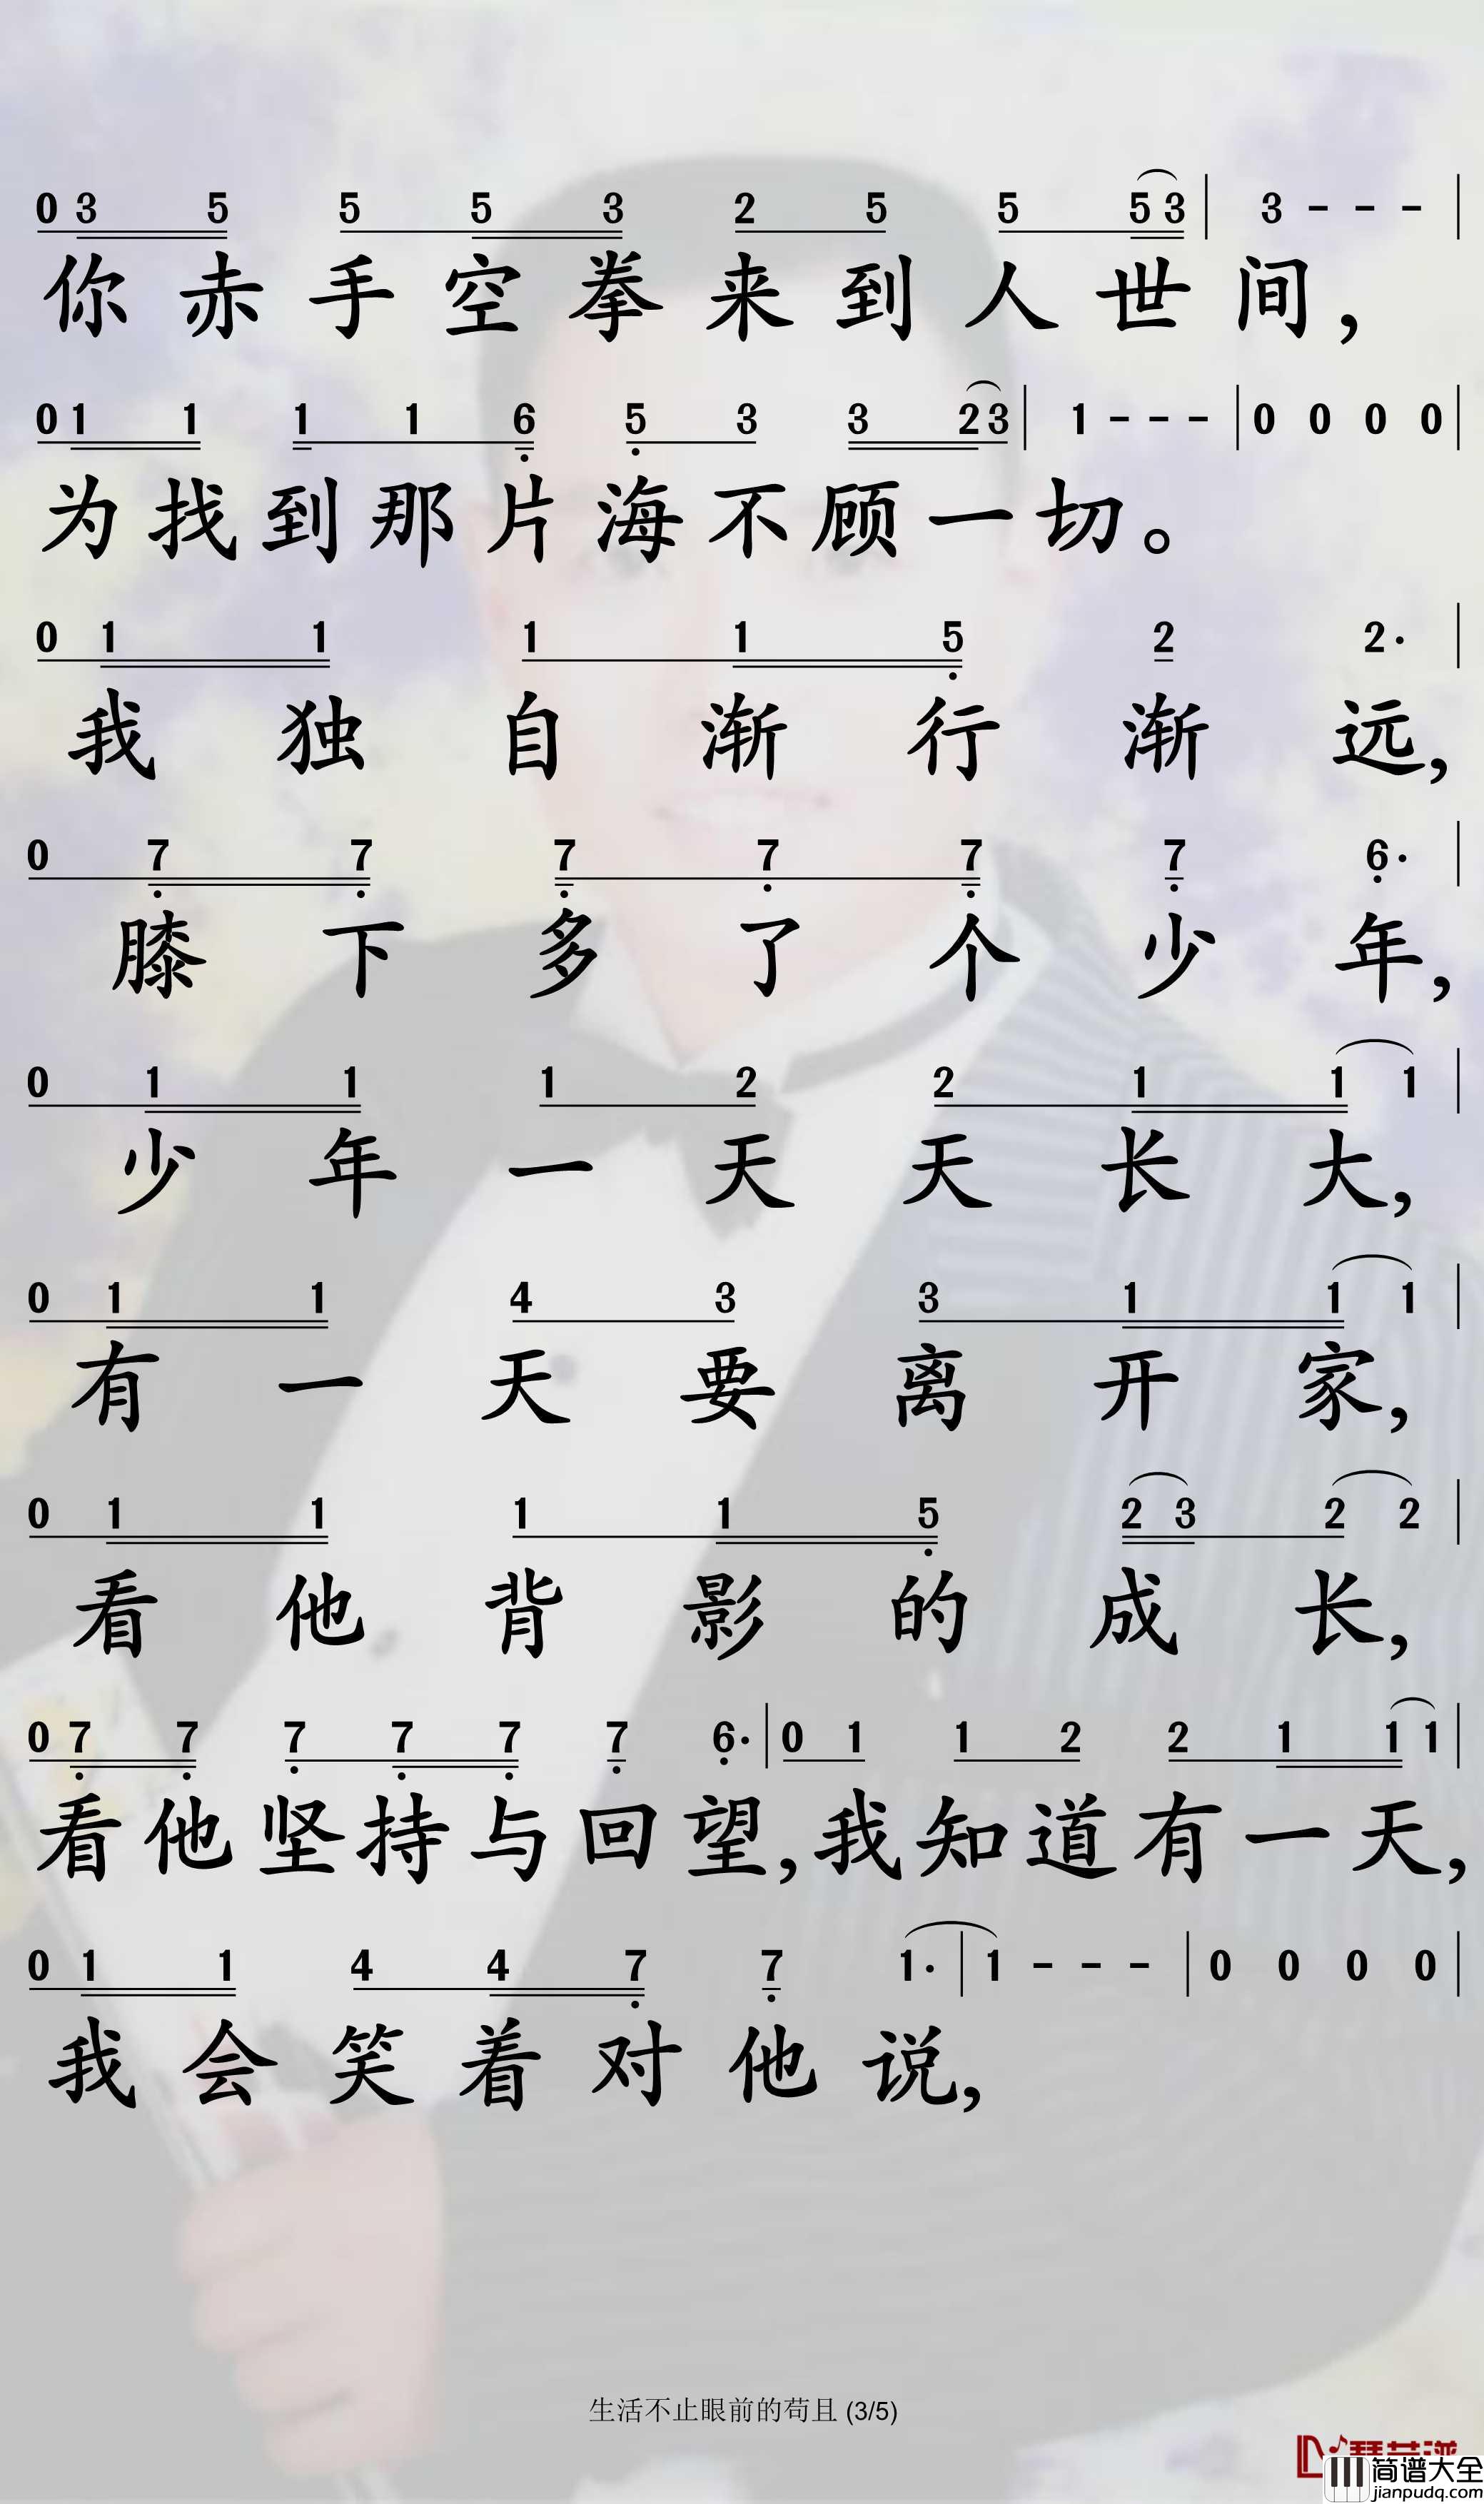 0 3 5 5 5 3 2 5 5 5 3 | 3 - - - |
你赤手空拳来到人世间，
0 1 1 1 1 6 5 3 3 2 3 | 1 - - - | 0 0 0 0 |
为找到那片海不顾一切。
0 1 1 1 1 5 2 2· |
我独自渐行渐远，
0 7 7 7 7 7 7 6· |
膝下多了个少年，
0 1 1 1 2 2 1 1 1 |
少年一天天长大，
0 1 1 4 3 3 1 1 1 |
有一天要离开家，
0 1 1 1 1 5 2 3 2 2 |
看他背影的成长，
0 7 7 7 7 7 7 6· | 0 1 1 2 2 1 1 1 |
看他坚持与回望，我知道有一天，
0 1 1 4 4 7 7 1· | 1 - - - | 0 0 0 0 |
我会笑着对他说，
生活不止眼前的苟且 (3/5)
简谱大全
jianpudq.com